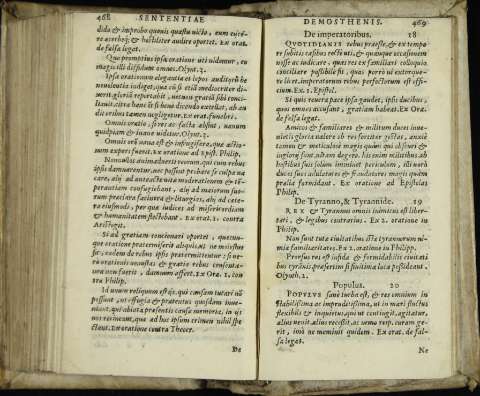 468 SENTENTIAE
dida & improbo quouis quæstu uicto, eum curâ-
re acerbè; & hostiliter audire oportet. Ex orat.
de falsa legat.
Quo promptius ipsa oratione uti uidemur, eu
magis illi diffidunt omnes. Olynt. 2.
Ipsa orationum elegantia et lepos auditorũ be
neuolentia indiget, qua cũ si etiã mediocriter di-
xerit gloriã reportabit, uenum gratiã sibi conci-
ab au
ditoribus tamen negligetur. Ex orat. funebri.
Omnis oratio, si res ac facta absint, uanum
quidpiam & inane uidetur. Olynt. 2.
Omnis oratio uana est &
Philip.
Nonnullos animaduerti reorum, qui cum rebus
ipsis damnarentur, nec possent probare se culpa ua
care, alij ad moderationem & tẽ-
perantiam confugiebant, alij ad maiorum suo-
rum præclare facinora & liturgies, alij ad cæte
ra eiusmodi, per quæ iudices ad misericordiam
& humanitatem flectebant. Ex orat. 1. contra
Aristogit.
Si ad gratiam concionari oportet, quæcun-
que oratione prætermiserit aliquis, ut ne molestus
sit, eadem de rebus ipsis prætermittuntur: sin ue
ro orationis uenustas & gratia rebus
uera non fuerit, damnum affert. Ex Ora. 1. con
tra Philip.
Id unum reliquum est ijs, qui causam tutari nõ
possunt, ut effugia & prætextus quosdam inue-
niant, qui abiuta præsentis causæ memoria, in ijs
uos detineant, quæ ad hoc ipsum crimen nihil spe
ctant. Ex oratione contra Theocr.
De
DEMOSTHENIS. 469
De imperatoribus. 18
QVOTIDIANIS rebus præesse, & ex tempo
re subitis casibus recte uti, & quæque occasionem
nosse ac iudicare, quas res ex familiari colloquio
conciliare possibile sit, quas porrò ui extorque-
re licet, imperatorum rebus perfectorum est offi-
cium. Ex. 1. Epistol.
Si quis reuera pace ipsa gaudet, ipsis ducibus,
quos omnes accusant, gratiam habeat. Ex Ora.
de falsa legat.
Amicos & familiares & militum duces inuo-
lutis gloriæ ualere ob res fortiter gestas, anxiè
tamen & meticulosè magis quàm qui obscuri &
ingloriĩ sunt, uitam degere. his enim militibus ab
hostibus suis solum imminet periculum, illi uerò
duces suos adulatores & fraudatores magis quàm
prælia formidant. Ex oratione ad Epistolas
Philip.
De Tyranno, & Tyrannide. 19
REX & Tyrannus omnis inimicus est liber-
tati, & legibus contrarius. Ex 2. oratione in
Philip.
Non sunt tuta ciuitatibus cũ tyrannis
nimia familiaritates. Ex 2. oratione in Philipp.
Prorsus res est infida & formidabilis ciuitati
bus tyrãnis, præsertim si finitima loca possideant.
Olynth. 2.
Populus. 20
POPVLVS sanè turba est, & res omnium in
stabilissima ac imprudentissima, ut in mari fluctus
flexibilis & inquietus, qui ut contingit, agitatur,
alius uenit alius recessit, ac nemo resp. curam ge-
rit, imò ne meminit quidem. Ex orat. de fal-
sa legat.
Ne